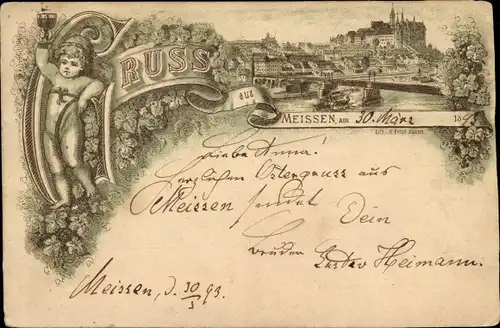 GRUSS
aus
MEISSEN, am 30. März 189
Liebe Anna!
Herzlichen Ostergruss aus
Meissen sendet Dein
Bruder Gustav Heimann.
Meissen, d. 30/3 93.